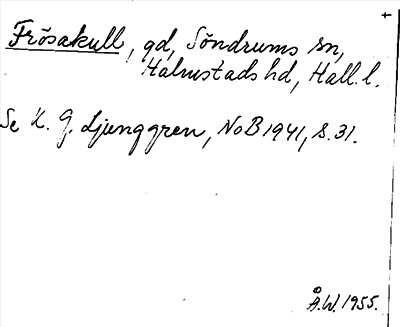 Frösakull, gd, Söndrums sn,
Halmstads hd, Hall. l.
Se K. G. Ljunggren, NoB 1941, s. 31.
Å.W. 1955.